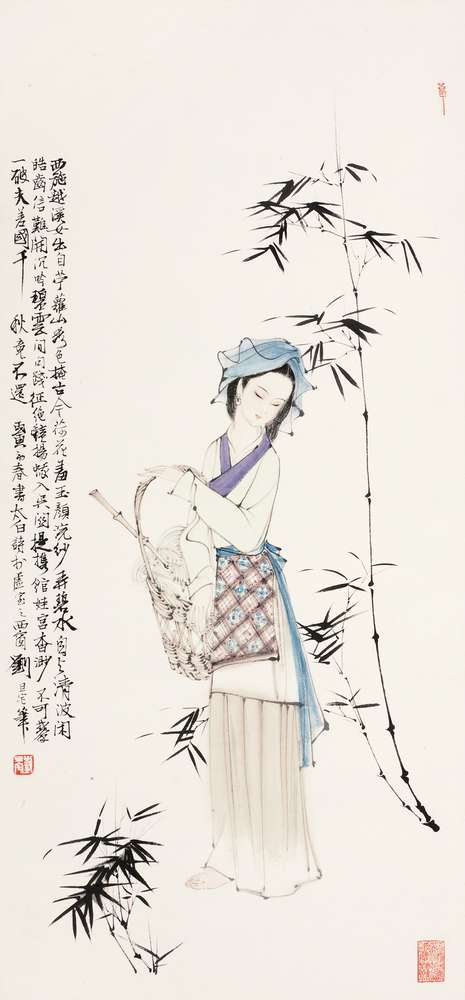 西施越溪女出自苧蘿山秀色掩古今荷花羞玉顏浣紗弄碧水自与清波闲
皓齒信難開沉吟碧雲間勾踐征絕艷揚蛾入吳関提攜館娃宮杳渺不可攀
一破夫差國千秋竟不還 寅春書太白詩於虛室之西窗劉旦宅筆